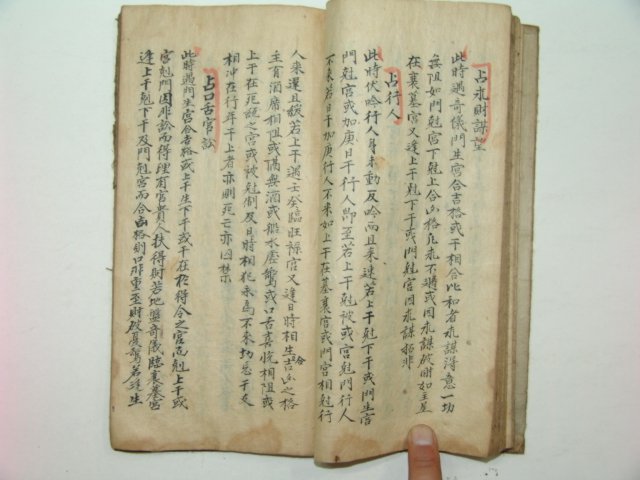 占求財謀望
此時遇奇儀門生宮合吉格或干相合比和者求謀得意一切
無阻如門尅宮下尅上合凶格凡求不得或因求謀破財如主星
在衰墓宮又逢上干尅下干或門尅宮因求謀招非
占行人
此時伏吟行人身未動反吟而且來速若上干尅下干或門生宮
門尅宮或加庚日干行人即至若上干尅被或宮尅門行人
不來若日干加庚行人不來如上干在墓衰宮或門宮相尅行
人來遲且緩若上干遇壬癸臨旺祿宮又逢日時相生合吉凶之格
主有酒食相阻或隔無酒或船水虛驚或口舌喜悅相阻或
上干在死絕之宮或被尅制及日時相犯永爲不來切忌干支
相冲在行年干上者亦則死亡亦囚禁
占口舌官訟
此時遇門生宮合吉格或上干生下干或干在於得令之宮尅上干或
宮尅門因非訟而得理有官貴人扶得財若地盤奇儀陸衰墓宮
逢上干尅下干及門尅宮而合凶格則口非重至財破憂驚若逢生